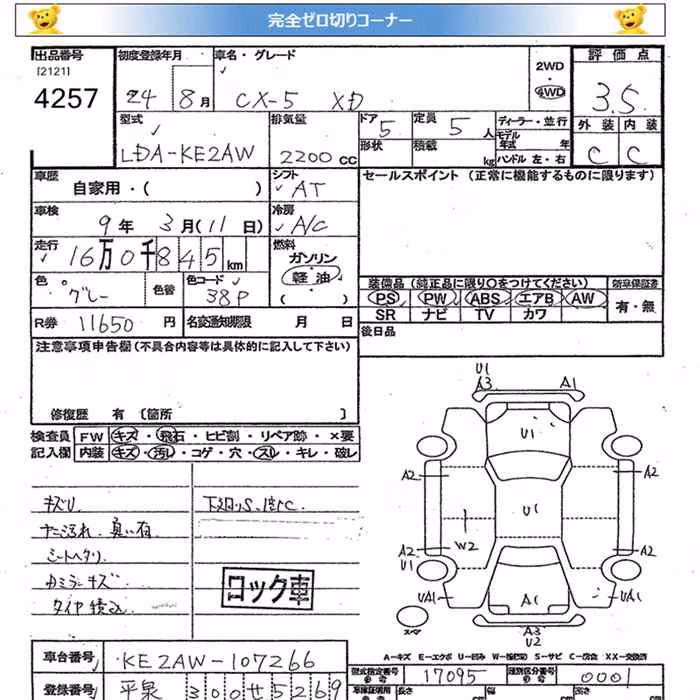 完全ゼロ切りコーナー
出品番号
[2121]
4257
初度登録年月
24 8月
車名・グレード
CX-5 XD
2WD
4WD
評価点
3.5
外装 内装
C C
型式
LDA-KE2AW
排気量
2200 CC
ドア 5
形状
定員 5 人
積載 kg
ディーラー・並行
モデル年式 年
ハンドル 左・右
車歴
自家用・( )
シフト
AT
セールスポイント (正常に機能するものに限ります)
車検
9年 3月(11日)
冷房
A/C
走行
16万0千845km
燃料
ガソリン
軽油
( )
色
グレー
色替
色コード
38P
装備品(純正品に限り○をつけてください)
PS PW ABS エアB AW
SR ナビ TV カワ
効率保証書
有・無
R券 11650 円
名変通知期限 月 日
後日品
注意事項申告欄(不具合内容等は具体的に記入して下さい)
修復歴 有 〔箇所 〕
検査員 FW キズ・飛石・ヒビ割・リペア跡・×要
記入欄 内装 キズ・汚レ・コゲ・穴・スレ・キレ・破レ
キズU
ナニ汚れ、臭い有
シートヘタリ
カミラーキズ
タイヤ積込
下廻りS、錆C
ロック車
U1
A3 A1
U1
A2 A2
U1
W2
A2 A2
U1
UA1 A1 UA1
スペア
A3
U2
A-キズ E-エクボ U-凹み W-補修跡 S-サビ C-腐食 XX-交換済
車台番号 KE2AW-107266
登録番号 平泉 300せ5269
型式指定番号 17095 類別区分番号 0001
長さ